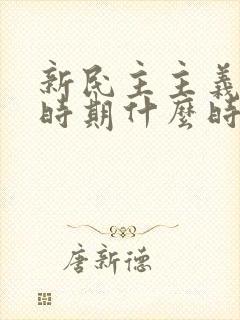 新民主主義
時期什麼時
唐新德